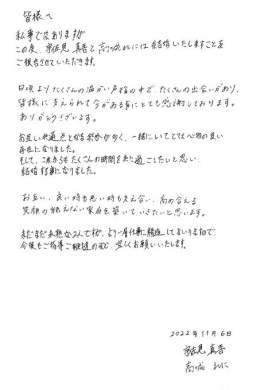 皆様へ
私事ではありますが
この度、宇佐見真吾と高城れにはは結婚いたしますことを
ご報告させていただきます。
日頃よりたくさんの温かい声援の中で たくさんの出会いがあり、
皆様に支えられて今がある事にとても感謝しております。
ありがとうございます。
お互いに共通点となる部分が多く、一緒にいてとても心地の良い
存在になりました。
そして、これからもたくさんの時間を共に過ごしたいと思い
結婚
お互い、良い時も悪い時も支え合い、高め合える
笑顔の絶えない家庭を築いていきたいと思います。
まだまだ未熟な2人ですが、より一層仕事に精進してまいりますので
今後もご指導ご鞭撻の程、宜しくお願いいたします。
2022年11月6日
宇佐見 真吾
高城 れに